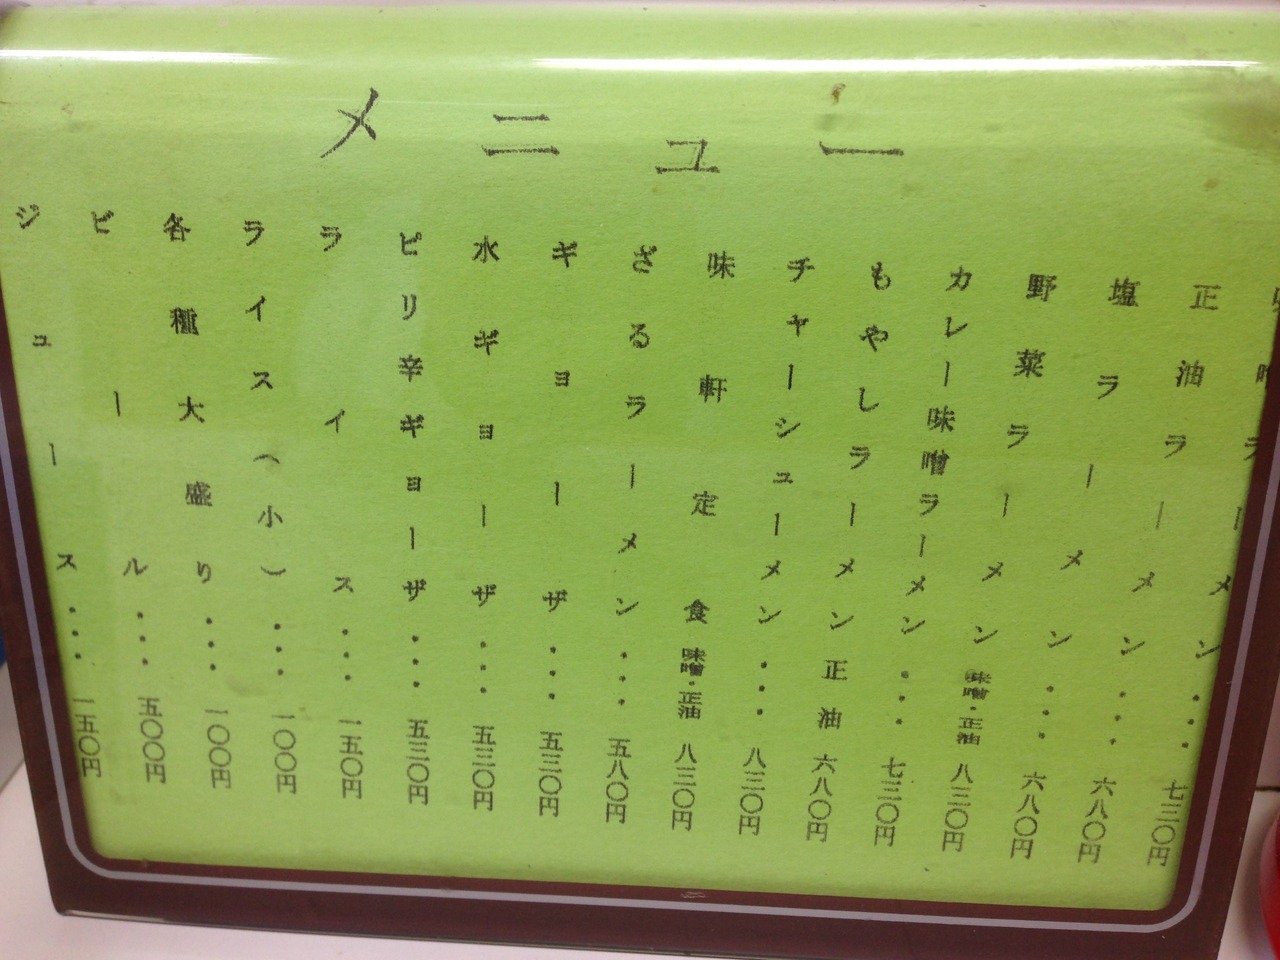 メニュー
味噌ラーメン・・・七三〇円
正油ラーメン・・・六八〇円
塩ラーメン・・・六八〇円
野菜ラーメン味噌・正油八三〇円
カレー味噌ラーメン・・・七三〇円
もやしラーメン正油六八〇円
チャーシューメン・・・八三〇円
味軒定食味噌・正油八三〇円
ざるラーメン・・・五八〇円
ギョーザ・・・五三〇円
水ギョーザ・・・五三〇円
ピリ辛ギョーザ・・・五三〇円
ライス・・・一五〇円
ライス(小)・・・一〇〇円
各種大盛り・・・一〇〇円
ビール・・・五〇〇円
ジュース・・・一五〇円